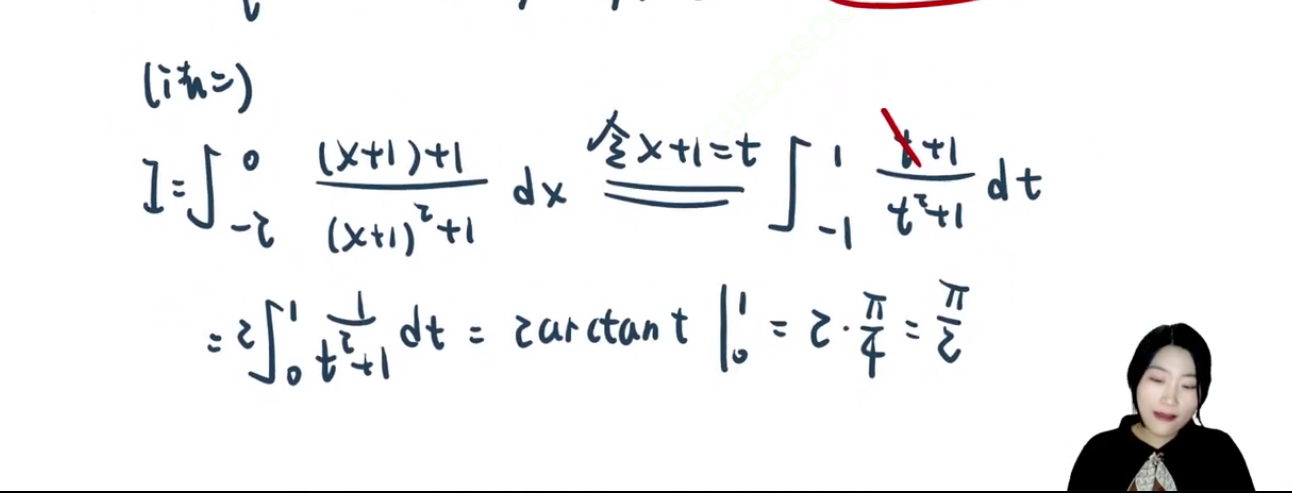 (法二)
I=∫_{-2}^{0} \frac{(x+1)+1}{(x+1)^2+1} dx \xlongequal{令x+1=t} ∫_{-1}^{1} \frac{t+1}{t^2+1} dt
=2∫_{0}^{1} \frac{1}{t^2+1} dt = 2arctan t |_{0}^{1} = 2·\frac{π}{4} = \frac{π}{2}